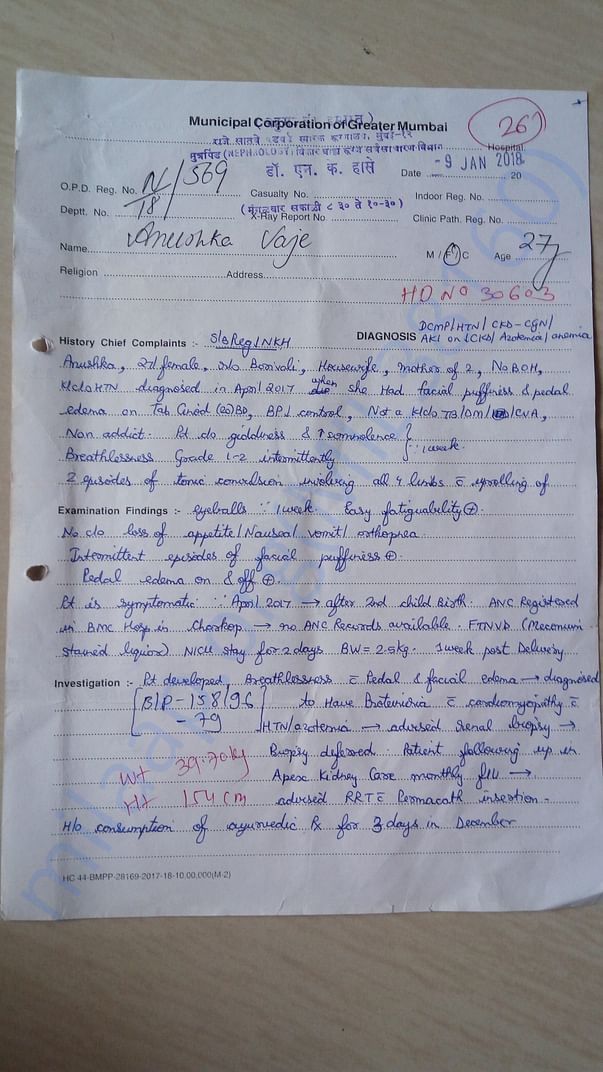 Municipal Corporation of Greater Mumbai
267
Hospital
(NEPHROLOGY)
डॉ. एन. क. हासे
Date - 9 JAN 2018 20
O.P.D. Reg. No. N/569
Casualty No.
Indoor Reg. No.
Deptt. No. 18
(मंगळवार सकाळी ८ ३० ते १०-३०)
X-Ray Report No
Clinic Path. Reg. No.
Name Anushka Vaje
M / F / C Age 27y
Religion Address
HD No 30603
DCMP/HTN/ CKD-CGN/
History Chief Complaints :- S/B Reg/NKH DIAGNOSIS AKI on CKD/ Azotemia/ anemia
Anushka, 27/female, Borivali, Housewife, Mother of 2, No BOH,
K/c/o HTN diagnosed in April 2017 when she Had facial puffiness & pedal
edema on Tab BD, BP control, Not a K/c/o TB/DM/ /CVA,
Non addict. Pt c/o giddiness & ↑ somnolence } 1 week.
Breathlessness Grade 1-2 intermittently
2 episodes of tonic convulsion involving all 4 limbs c̄ uprolling of
Examination Findings :- eyeballs ∵ 1 week. Easy fatiguability ⊕.
No c/o loss of appetite/ Nausea/ vomit/ orthopnea.
Intermittent episodes of facial puffiness ⊕.
Pedal edema on & off ⊕.
Pt is symptomatic ∵ April 2017 → after 2nd child Birth. ANC Registered
in BMC Hosp in Charkop → no ANC Records available. FTNVD (Meconium
stained liquor) NICU stay for 2 days BW = 2.5kg. 1 week post Delivery
Investigation :- Pt developed Breathlessness c̄ Pedal & facial edema → diagnosed
[B/P - 158/96 to Have Proteinuria c̄ cardiomyopathy c̄
- 79] HTN/azotemia → advised renal biopsy →
Wt 39.70kg Biopsy deferred. Patient following up in
Apex Kidney Care monthly f/u →
Ht 154cm advised RRT c̄ Permacath insertion.
H/o consumption of ayurvedic Rx for 3 days in December
HC 44-BMPP-28169-2017-18-10,00,000(M-2)